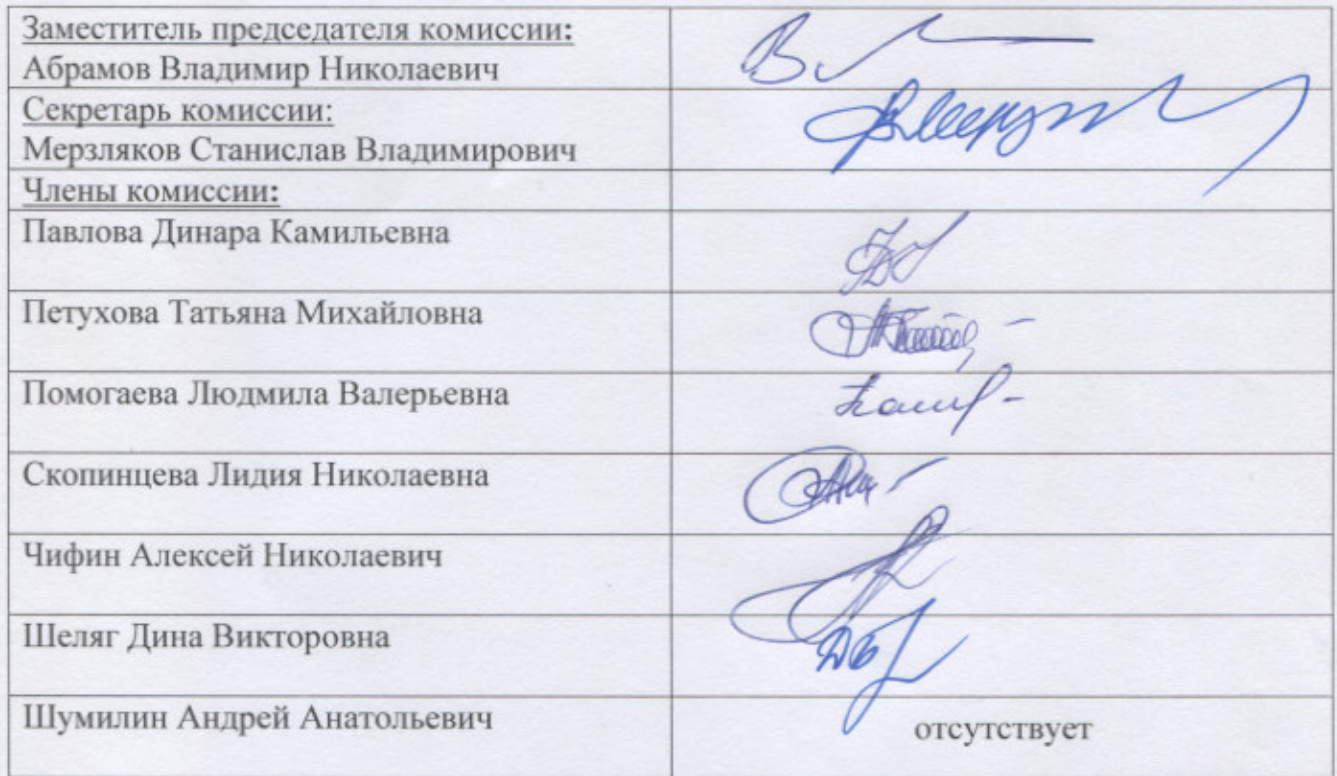 Заместитель председателя комиссии:
Абрамов Владимир Николаевич
Секретарь комиссии:
Мерзляков Станислав Владимирович
Члены комиссии:
Павлова Динара Камильевна
Петухова Татьяна Михайловна
Помогаева Людмила Валерьевна
Скопинцева Лидия Николаевна
Чифин Алексей Николаевич
Шеляг Дина Викторовна
Шумилин Андрей Анатольевич
отсутствует